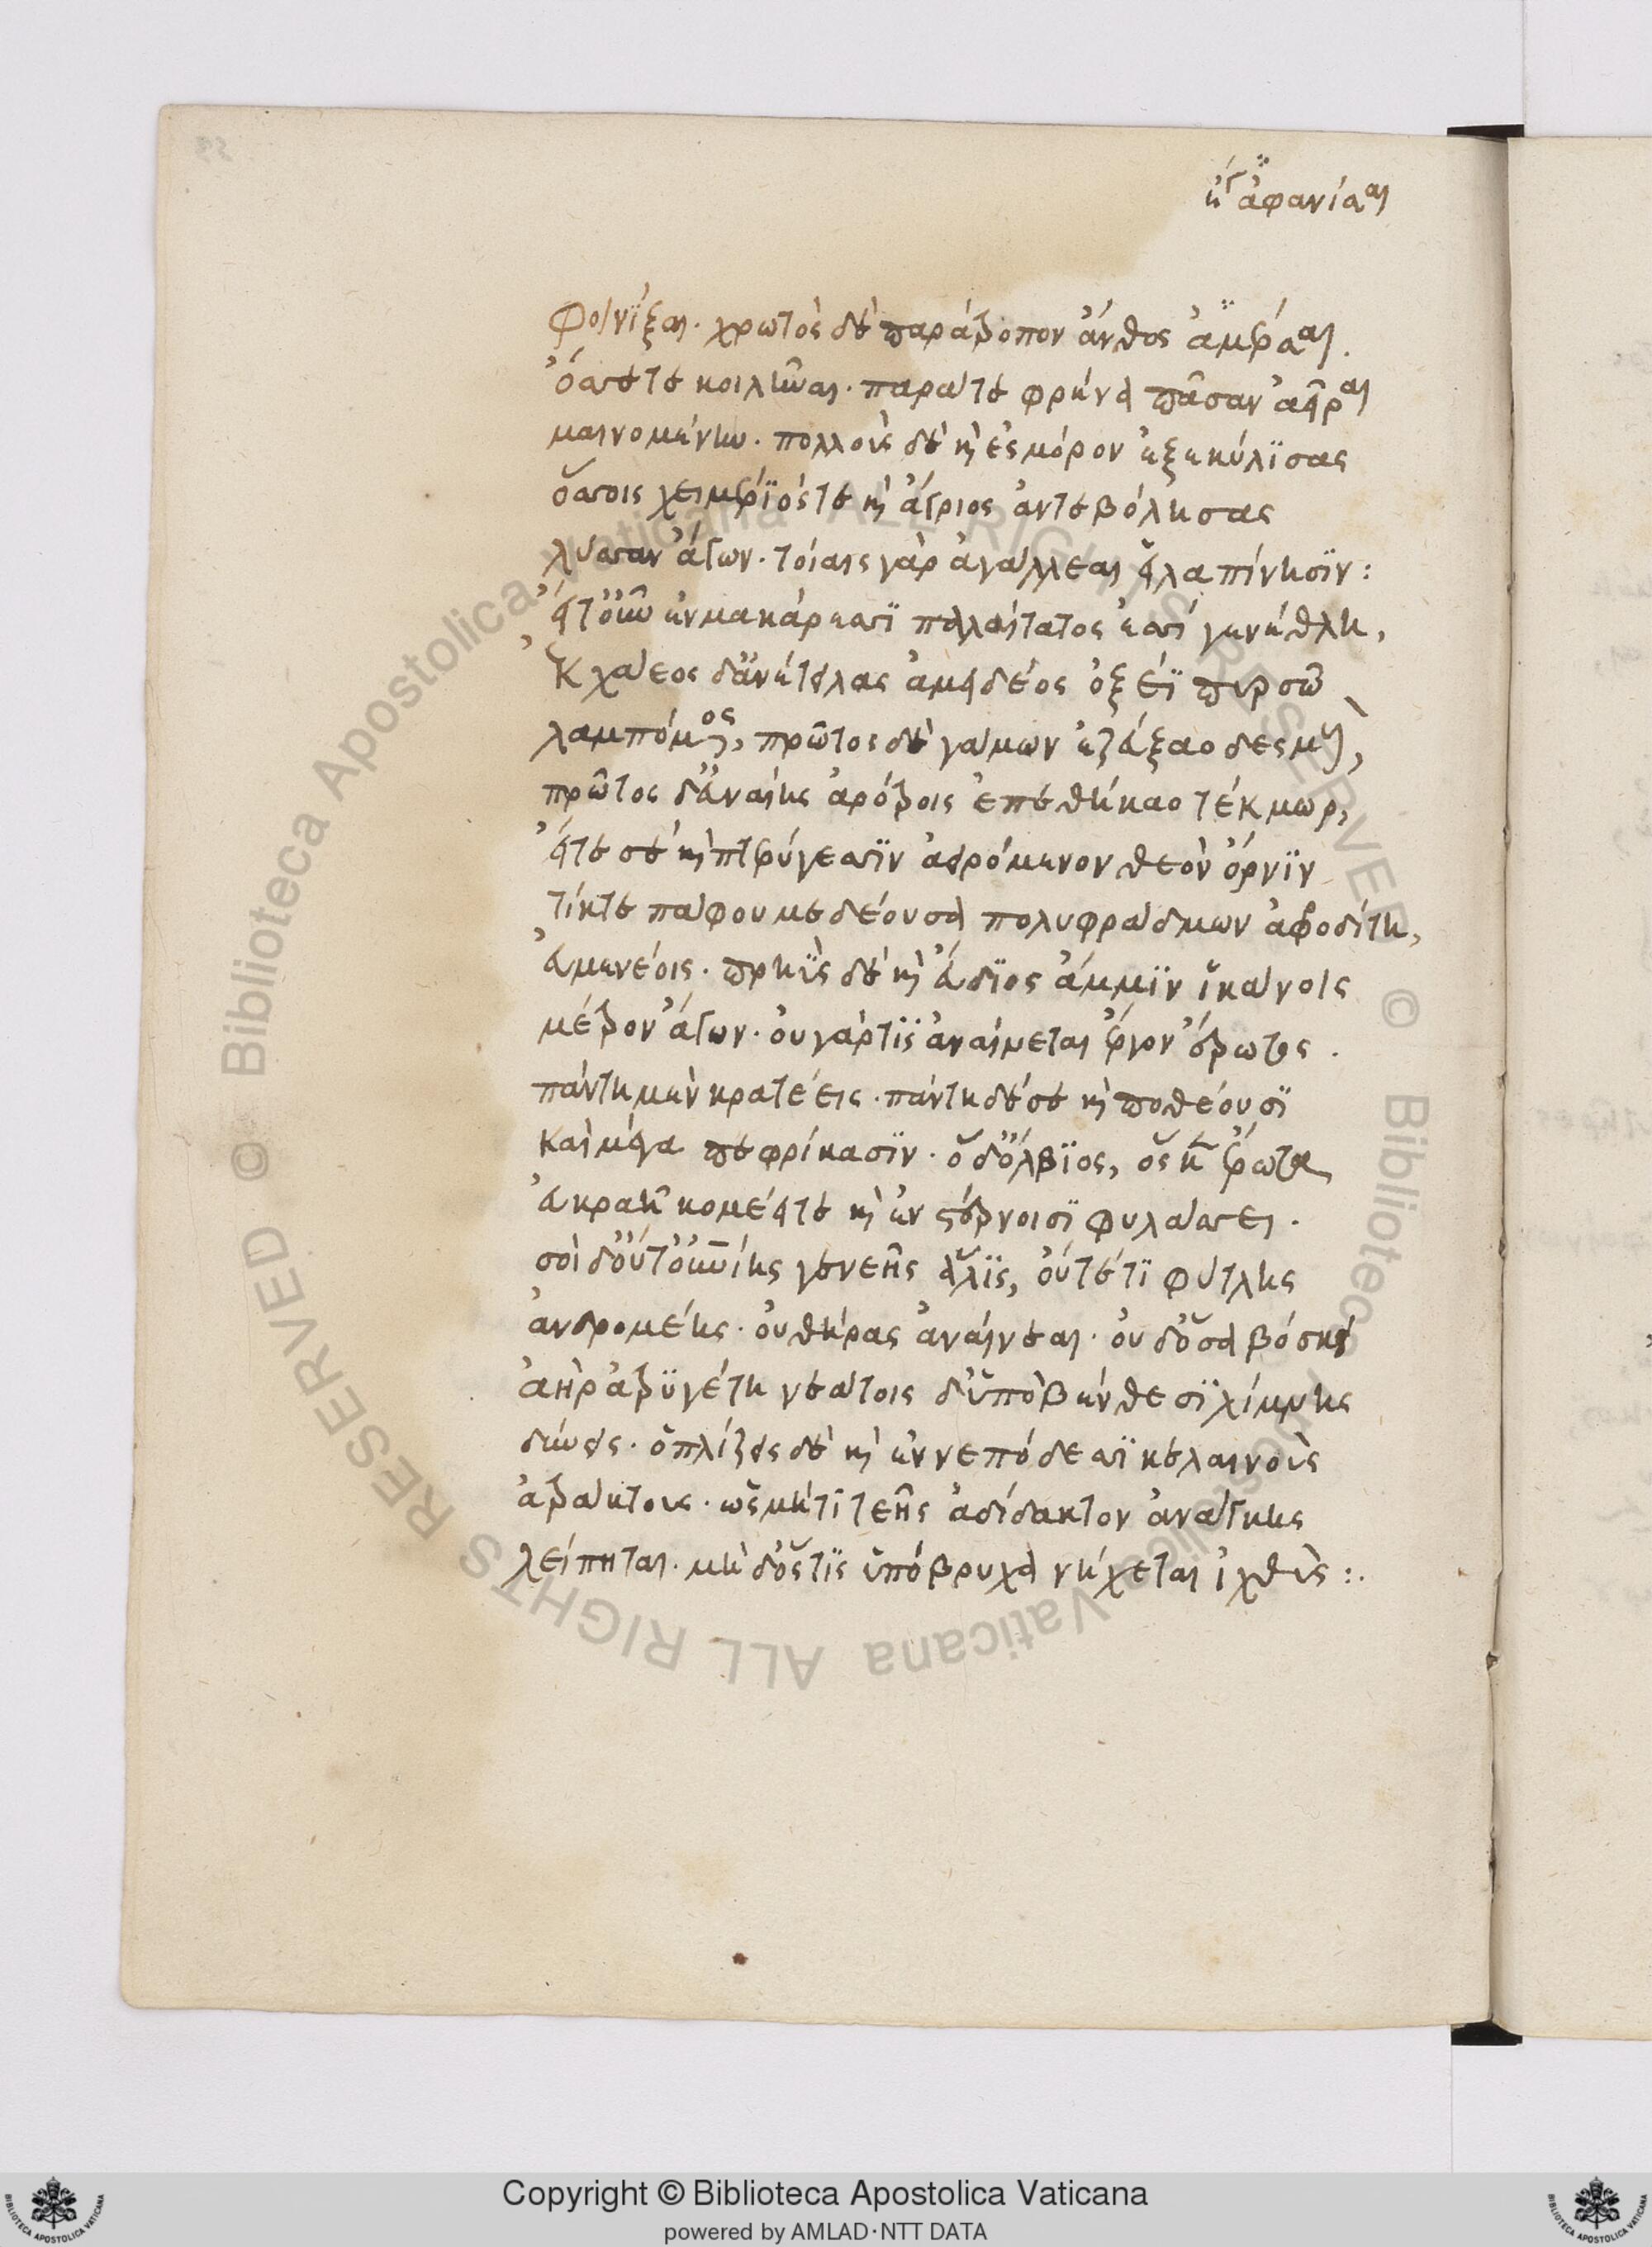 ἤγ ἀφανίσαι
Φοινίξαι· χρωτὸς δὲ παράτροπον ἄνθος ἀμέρσαι.
ὄσσέ τε κοιλῶναι· παραίτε φρένα πᾶσαν ἀεῖραι
μαινομένην· πολλοὺς δὲ καὶ ἐς μόρον ἐξεκύλϊσας
ὅσσοις χειμέρϊός τε καὶ ἄγριος ἀντεβόλησας
λύσσαν ἄγων· τοίαις γὰρ ἀγάλλεαι εἰλαπίνησϊν:
εἴτοὖν ἐν μακάρεσσϊ παλαίτατος ἐσσὶ γενέθλη,
ἐκ χάεος δ' ἀνέτειλας ἀμειδέος ὀξέϊ πυρσῶ
λαμπόμενος, πρῶτος δὲ γάμων ἐζεύξαο δεσμοὺς,
πρῶτος δ' εὐναίης ἀρότροις ἐπεθήκαο τέκμωρ,
εἴτέ σε καὶ πτερύγεσσϊν ἀειρόμενον θεὸν ὄρνϊν
τίκτε πάφου μεδέουσα πολυφράδμων ἀφροδίτη,
εὐμενέοις· πρηῢς δὲ καὶ εὔδϊος ἄμμϊν ἱκάνοις
μέτρον ἄγων· οὐ γάρ τϊς ἀναίνεται ἔργον ἔρωτος.
πάντη μὲν κρατέεις· πάντη δέ σε καὶ ποθέουσϊ
καὶ μέγα πεφρίκασϊν· ὁ δ' ὄλβϊος, ὅς κεν ἔρωτα
εὐκραῆ κομέειτε καὶ ἐν στέρνοισϊ φυλάσσει.
σοὶ δ' οὔτ' οὐνίης γενεῆς ἅλϊς, οὔτέ τϊ φύτλης
ἀνδρομέης· οὐ θῆρας ἀναίνεαι· οὐδ' ὅσα βόσκει
ἀὴρ ἀτρϋγέτη νεάτοις δ' ὑπὸ βένθεσϊ λίμνης
δύνεις· ὁπλίζεις δὲ καὶ ἐν νεπόδεσσϊ κελαινοὺς
ἀτράκτους· ὡς μήτι τεῆς ἀδίδακτον ἀνάγκης
λείπηται· μὴ δ' ὅς τϊς ὑπόβρυχα νήχεται ἰχθὺς:.
Copyright © Biblioteca Apostolica Vaticana
powered by AMLAD·NTT DATA